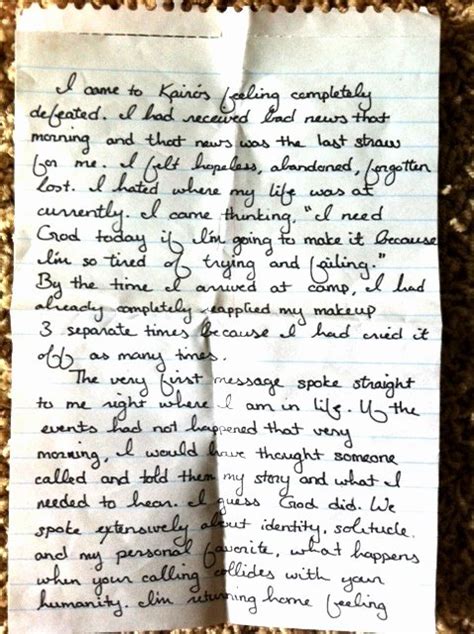 I came to Kairos feeling completely
defeated. I had received bad news that
morning and that news was the last straw
for me. I felt hopeless, abandoned, forgotten
lost. I hated where my life was at
currently. I came thinking, "I need
God today if I'm going to make it because
I'm so tired of trying and failing."
By the time I arrived at camp, I had
already completely reapplied my makeup
3 separate times because I had cried it
off as many times.
The very first message spoke straight
to me right where I am in life. If the
events had not happened that very
morning, I would have thought someone
called and told them my story and what I
needed to hear. I guess God did. We
spoke extensively about identity, solitude
and my personal favorite, what happens
when your calling collides with your
humanity. I'm returning home feeling